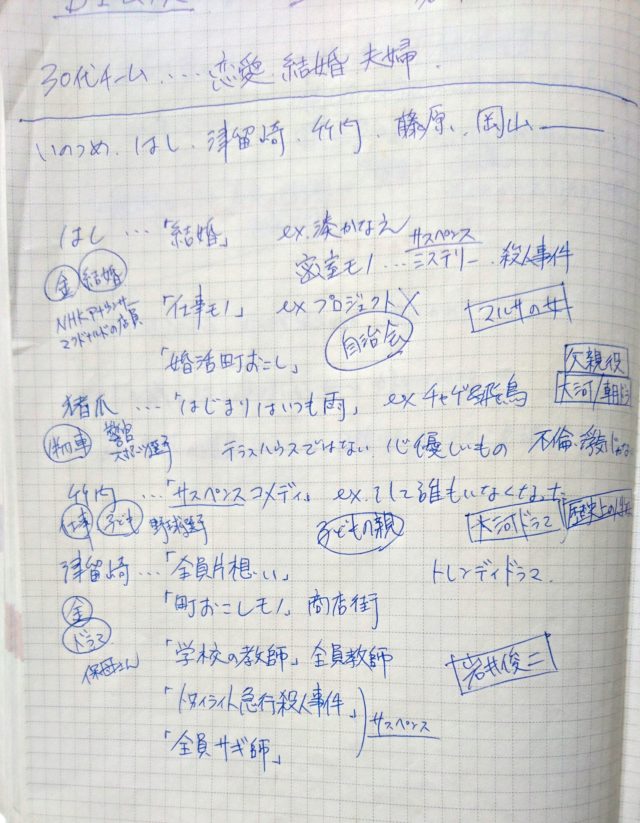 30代チーム‥‥恋愛 結婚 夫婦.
いのつめ、はし、津留崎、竹内、藤原、岡山
はし…「結婚」 ex.湊かなえ サスペンス
金 結婚 密室モノ…ミステリー…殺人事件
NHKアナウンサー 「仕事モノ」 exプロジェクトX マルサの女
マクドナルドの店員 自治会
「婚活町おこし」 父親役
猪爪…「はじまりはいつも雨」 exチャゲ&飛鳥 大河/朝ドラ
警官
スポーツ選手 テラスハウスではない 心優しいもの 不倫
竹内…「サスペンスコメディ」 ex.そして誰もいなくなった
仕事 子ども 野球選手 子どもの親 大河ドラマ 歴史上の
津留崎…「全員片想い」 トレンディドラマ.
金 「町おこしモノ」商店街
ドラマ
保母さん 「学校の教師」全員教師 岩井俊二
急行殺人事件」
サスペンス
「全員サギ師」